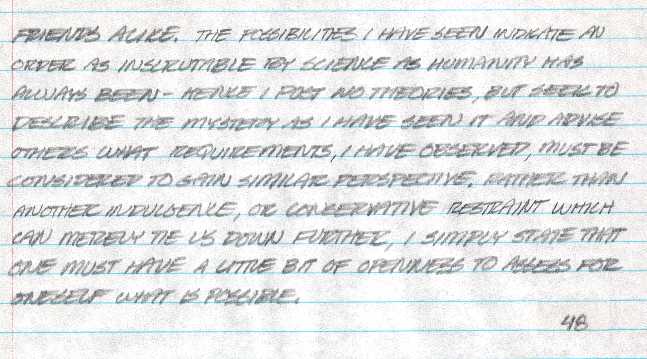 FRIENDS ALIKE. THE POSSIBILITIES I HAVE SEEN INDICATE AN
ORDER AS INSCRUTABLE BY SCIENCE AS HUMANITY HAS
ALWAYS BEEN - HENCE I POST NO THEORIES, BUT SEEK TO
DESCRIBE THE MYSTERY AS I HAVE SEEN IT AND ADVISE
OTHERS WHAT REQUIREMENTS, I HAVE OBSERVED, MUST BE
CONSIDERED TO GAIN SIMILAR PERSPECTIVE. RATHER THAN
ANOTHER INDULGENCE, OR CONSERVATIVE RESTRAINT WHICH
CAN MERELY TIE US DOWN FURTHER, I SIMPLY STATE THAT
ONE MUST HAVE A LITTLE BIT OF OPENNESS TO ASSESS FOR
ONESELF WHAT IS POSSIBLE.
48